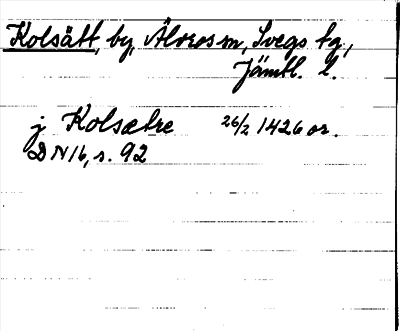 Kolsätt, by, Älvros sn, Svegs tg,
Jämtl. l.
j Kolsætre 26/2 1426 or.
DN 16, s. 92